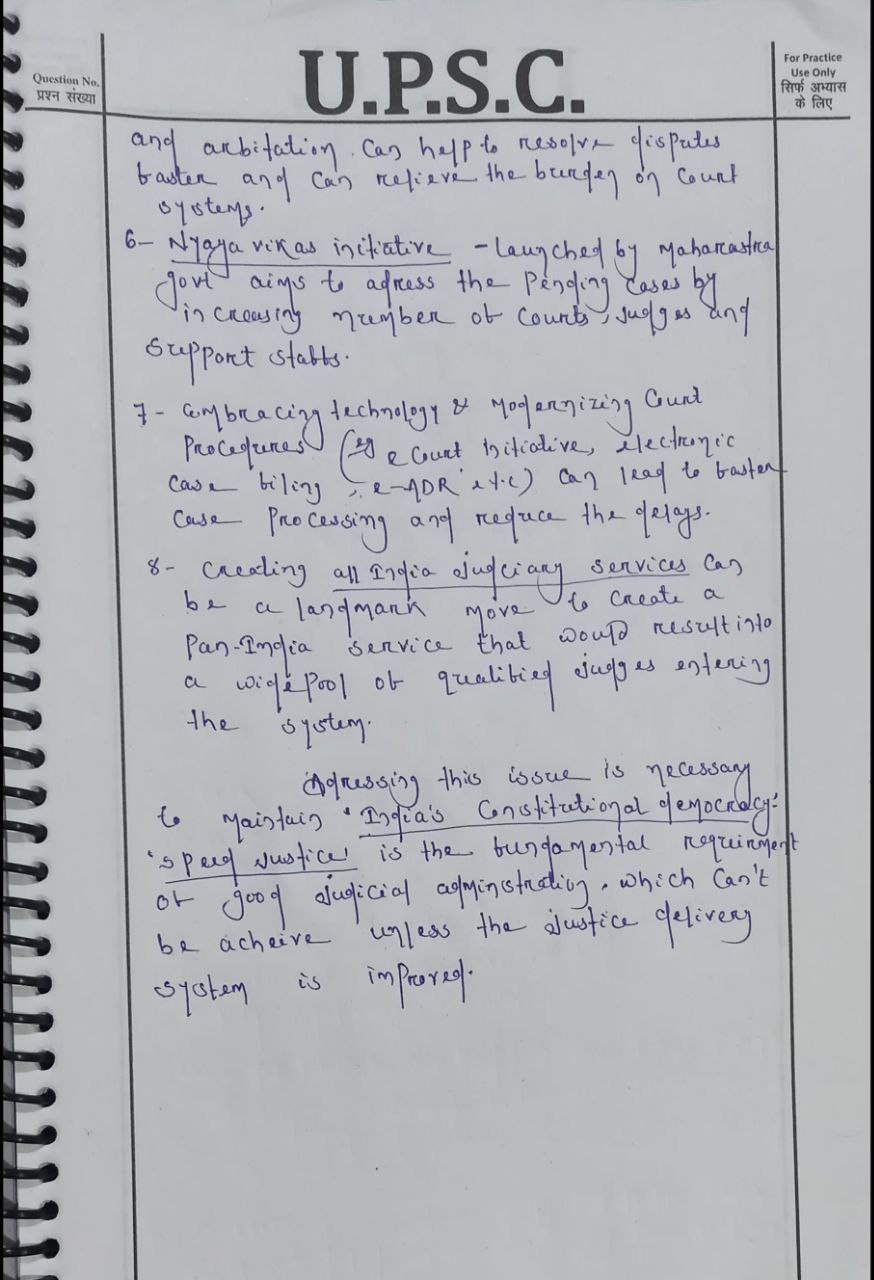 Question No.
प्रश्न संख्या
U.P.S.C.
For Practice
Use Only
सिर्फ अभ्यास
के लिए
and arbitation. Can help to resolve disputes
faster and can relieve the burden on Court
systems.
6- Nyaya vikas initiative - Launched by Maharastra
govt aims to adress the Pending cases by
increasing number of courts, Judges and
Support staffs.
7- embracing technology & Modernizing Court
Procedures (eg e Court initiative, electronic
case filing, e-ADR etc) can lead to faster
case Processing and reduce the delays.
8- Creating all India Judciary services can
be a landmark move to create a
Pan-India service that would result into
a wide pool of qualified Judges entering
the system.
Adressing this issue is necessary
to maintain 'India's Constitutional democracy'.
'speed Justice' is the fundamental requirment
of good Judicial administration. which can't
be acheive unless the Justice delivery
system is improved.